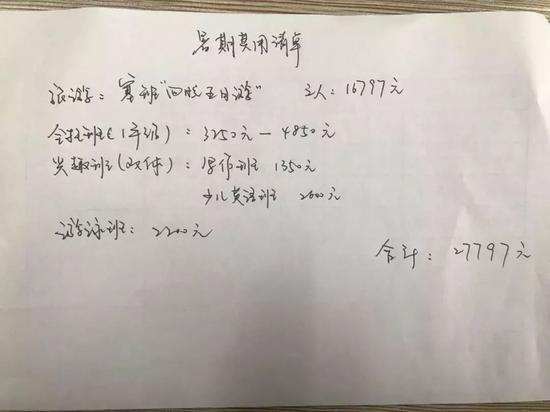 暑期费用清单
旅游: 塞班"四晚五日游" 3人: 16797元
全托班(1年级): 3250元-4850元
兴趣班(文体): 写作班 1350元
少儿英语班 2600元
游泳班: 2200元
合计: 27797元